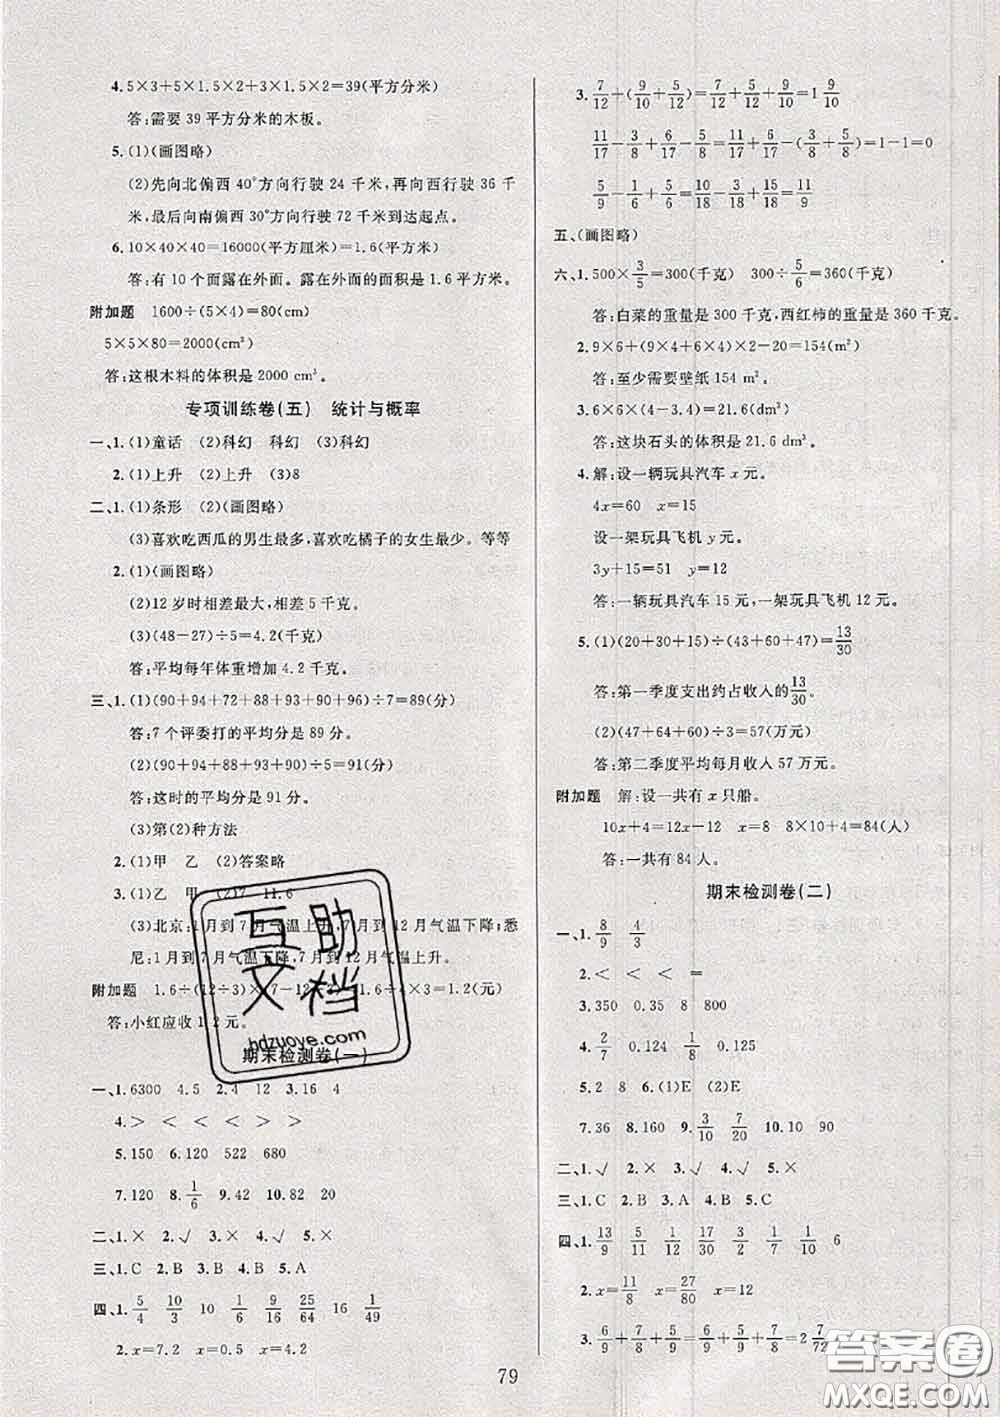 4. 5×3+5×1.5×2+3×1.5×2=39(平方分米)
答:需要 39 平方分米的木板。
5. (1)(画图略)
(2)先向北偏西 40°方向行驶 24 千米,再向西行驶 36 千
米,最后向南偏西 30°方向行驶 72 千米到达起点。
6. 10×40×40=16000(平方厘米)=1.6(平方分米)
答:有 10 个面露在外面。露在外面的面积是 1.6 平方分米。
附加题 1600÷(5×4)=80(cm)
5×5×80=2000(cm³)
答:这根木料的体积是 2000 cm³。
专项训练卷(五) 统计与概率
一、1. (1)童话 (2)科幻 科幻 (3)科幻
2. (1)上升 (2)上升 (3)8
二、1. (1)条形 (2)(画图略)
(3)喜欢吃西瓜的男生最多,喜欢吃橘子的女生最少。等等
2. (1)(画图略)
(2)12 岁时相差最大,相差 5 千克。
(3)(48-27)÷5=4.2(千克)
答:平均每年体重增加 4.2 千克。
三、1. (1)(90+94+72+88+93+90+96)÷7=89(分)
答:7 个评委打的平均分是 89 分。
(2)(90+94+88+93+90)÷5=91(分)
答:这时的平均分是 91 分。
(3)第(2)种方法
2. (1)甲 乙 (2)答案略
3. (1)乙 甲 (2)7 11.6
(3)北京:1月到7月气温上升,7月到12月气温下降;悉
尼:1月到7月气温下降,7月到12月气温上升。
附加题 1.6÷(12÷3)×(7-12÷3)=1.6÷4×3=1.2(元)
答:小红应收 1.2 元。
期末检测卷(一)
一、1. 6300 4.5 2. 4 12 3. 16 4
4. > < < < >
5. 150 6. 120 522 680
7. 120 8. 1/6 9. 42 10. 82 20
二、1. × 2. √ 3. √ 4. √ 5. ×
三、1. C 2. B 3. B 4. B 5. A
四、1. 5/4 10/3 10 1/6 9/26 25/64 16 1/49
2. x=7.2 x=0.5 x=4.3
3. 7/12+(9/10+5/12)=7/12+5/12+9/10=1 9/10
11/17-3/8+6/17-5/8=11/17+6/17-(3/8+5/8)=1-1=0
5/9-1/6+5/18=10/18-3/18+15/18=11/9
五、(画图略)
六、1. 500×3/5=300(千克) 300÷5/6=360(千克)
答:白菜的重量是 300 千克,西红柿的重量是 360 千克。
2. 9×6+(9×4+6×4)×2-20=154(m²)
答:至少需要壁纸 154 m²。
3. 6×6×(4-3.4)=21.6(dm³)
答:这块石头的体积是 21.6 dm³。
4. 解:设一辆玩具汽车 x 元。
4x=60 x=15
设一架玩具飞机 y 元。
3y+15=51 y=12
答:一辆玩具汽车 15 元,一架玩具飞机 12 元。
5. (1)(20+30+15)÷(43+60+47)=13/30
答:第一季度支出约占收入的13/30。
(2)(47+64+60)÷3=57(万元)
答:第二季度平均每月收入 57 万元。
附加题 解:设一共有 x 只船。
10x+4=12x-12 x=8 8×10+4=84(人)
答:一共有 84 人。
期末检测卷(二)
一、1. 8/9 4/3
2. < < < =
3. 350 0.35 8 800
4. 2/7 0.124 1/8 0.125
5. 2 8 6. (1)E (2)E
7. 36 8. 160 9. 3/10 7/20 10. 10 90
二、1. √ 2. × 3. √ 4. √ 5. ×
三、1. C 2. B 3. A 4. B 5. C
四、1. 13/9 5/11 1/12 17/30 3/2 1/7 1/10 6
2. x=11/8 x=27/80 x=12
3. 6/9+7/8+6/9+7/8+...=2 7/72
79
互助
文档
hdzuoye.com
答案圈
MXQE.COM